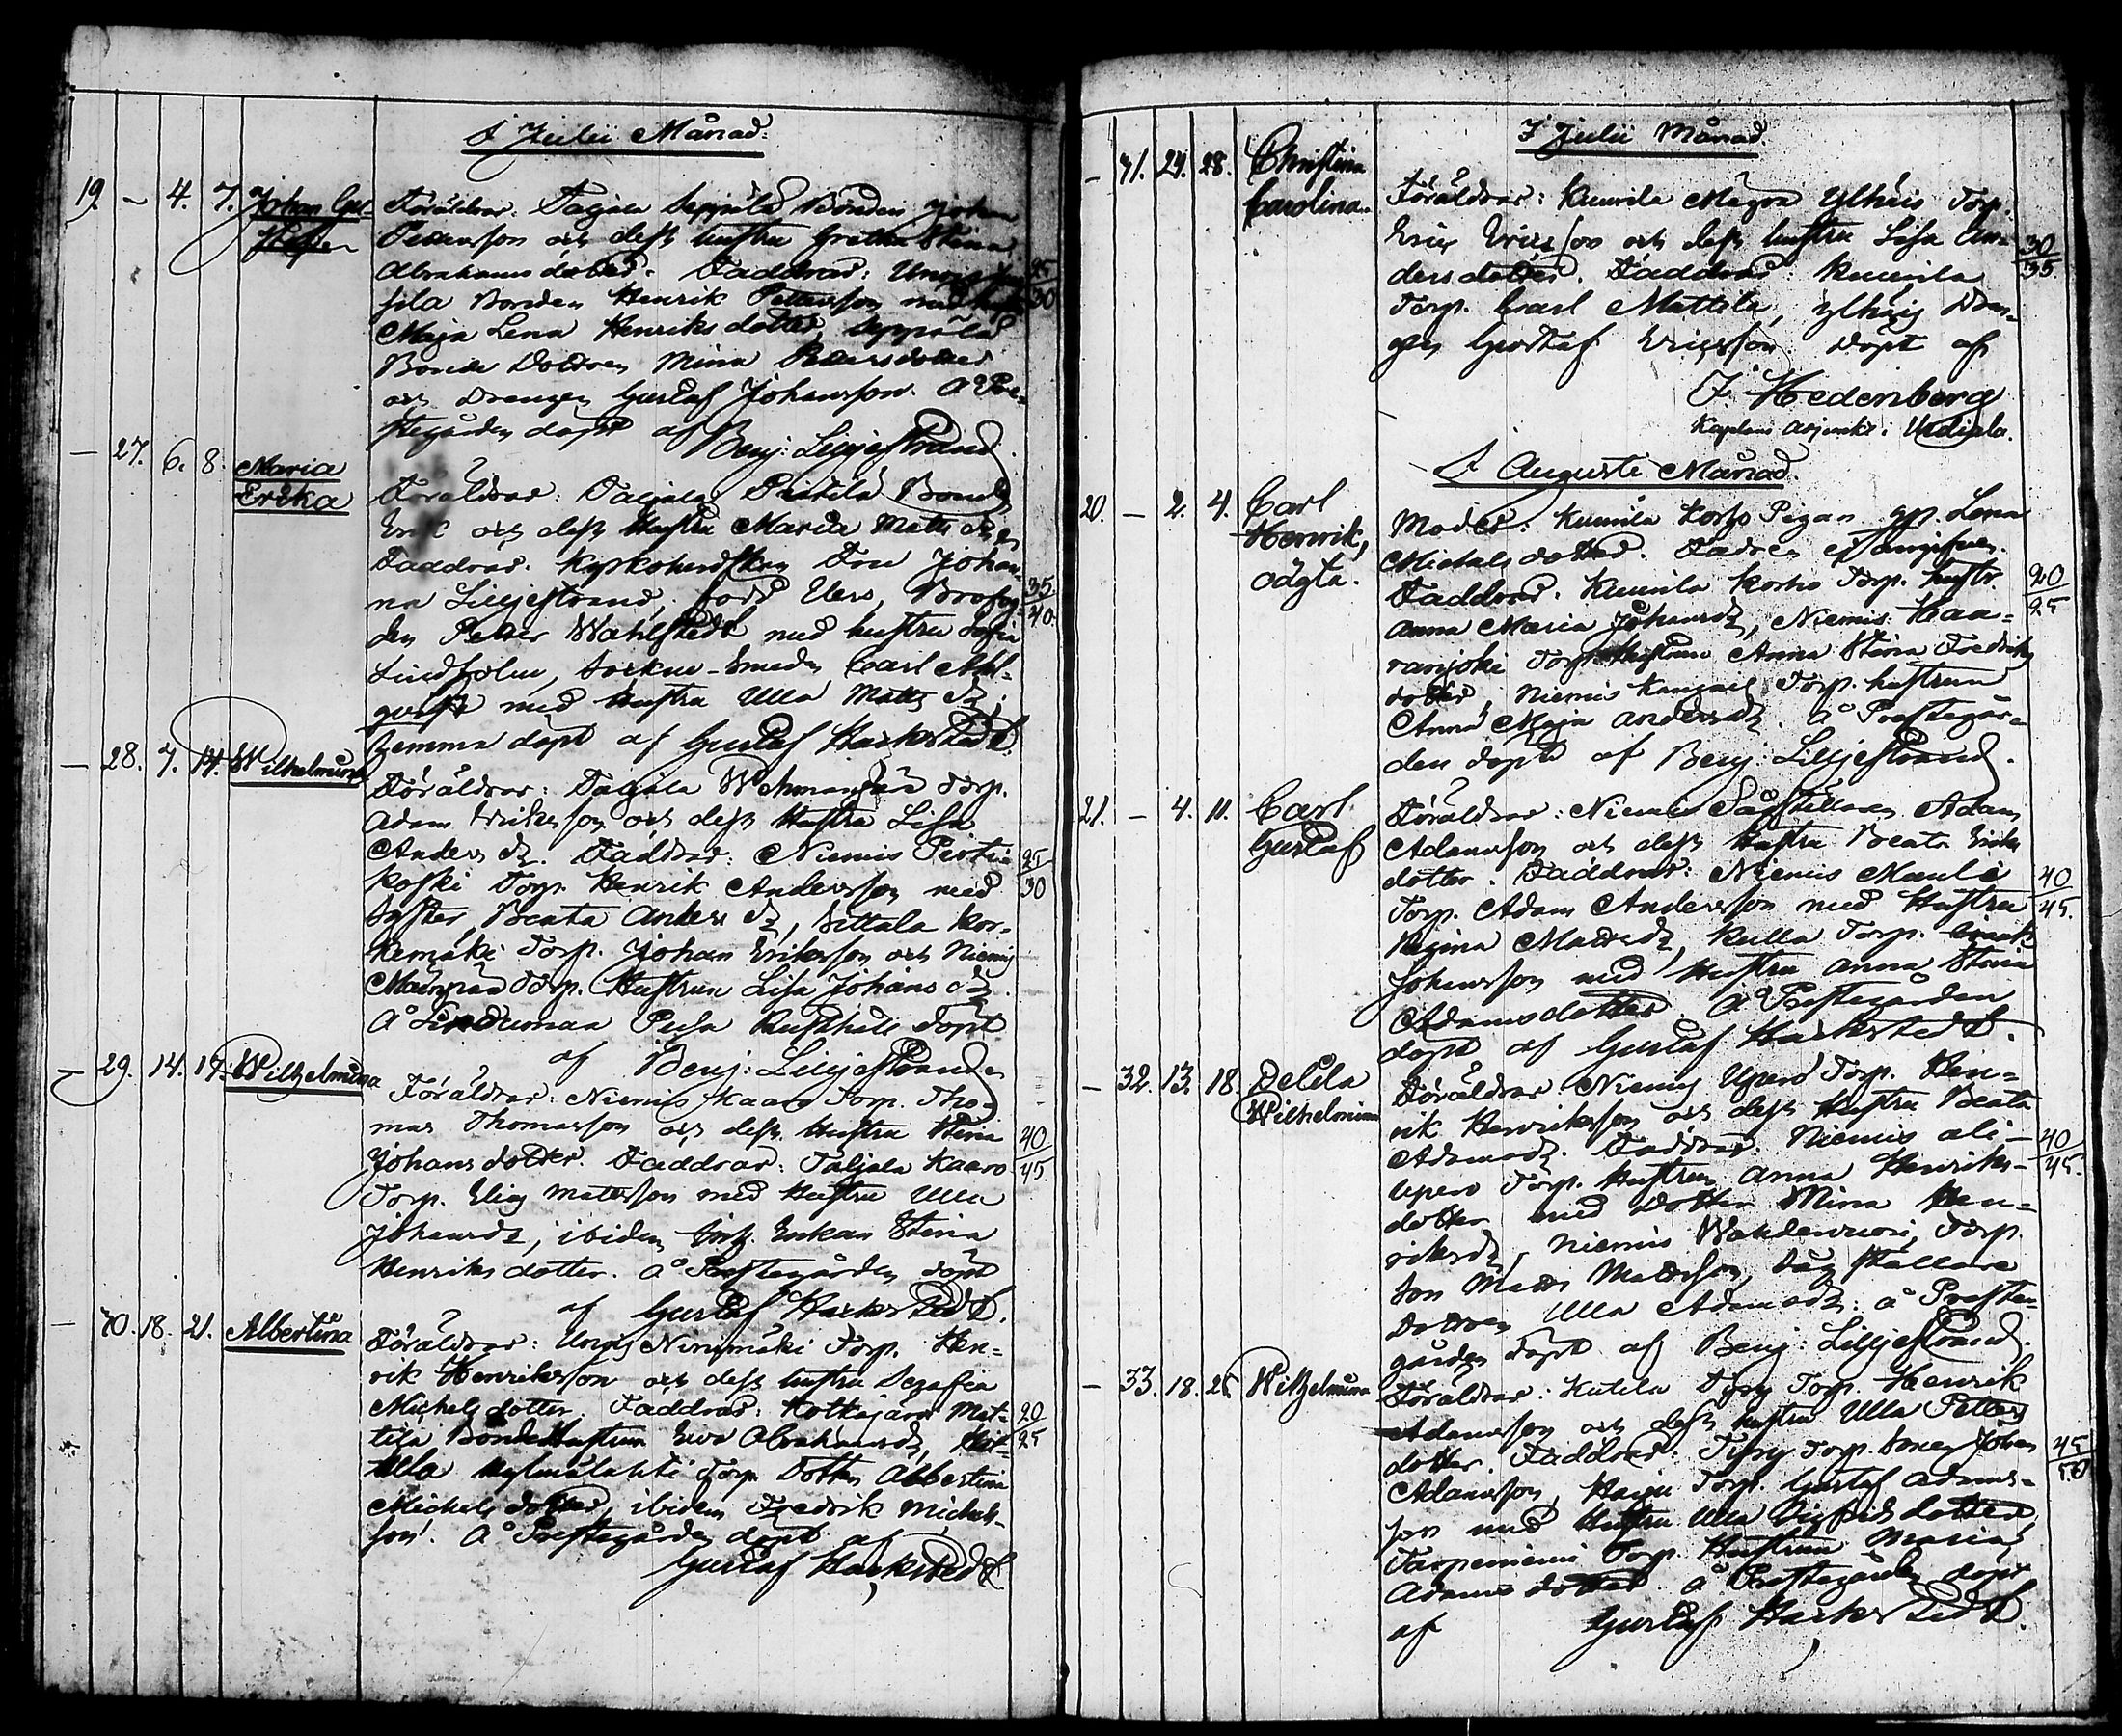 I Julii Månad.
19. – 4. 7. Johan Gus-
staf
Föräldrar: Taljala Seppälä Bonden Johan
Pettersson och dess hustru Gretha Stina
Abrahamsdotter. Faddrar: Unois
sila Bonden Henrik Pettersson med
Maja Lena Henriksdotter, Seppälä
Bonde Dottren Mina Pettersdotter
och Drengen Gustaf Johansson. Å Pre-
stegården döpt af Benj: Liljestrand.
25/30
– 27. 6. 8. Maria
Erika
Föräldrar: Taljala Bonden
Erik och dess Hustru Maria Matts dr
Faddrar. Kyrkoherdskan Fru Johan-
na Liljestrand, född Elers, Brofog-
den Petter Wahlstedt med hustru Sofia
Lindholm, Socken-Smeden Carl Ahl-
qvist med Hustru Ulla Matts dr,
hemma döpt af Gustaf Harkstedt.
35/40
– 28. 7. 14. Wilhelmina
Föräldrar: Taljala Torp.
Adam Eriksson och dess Hustru Lisa
Anders dr. Faddrar: Niemis Pertti-
koski Torp. Henrik Andersson med
Syster, Beata Anders dr, Sittala Kor-
kemäki Torp. Johan Eriksson och Niemis
Torp. Hustrun Lisa Johans dr.
Å Rusthåll döpt
af Benj: Liljestrand.
25/30
– 29. 14. 17. Wilhelmina
Föräldrar: Niemis Kaaro Torp. Tho-
mas Thomasson och dess Hustru Stina
Johansdotter. Faddrar: Taljala Kaaro
Torp. Elias Mattsson med Hustru Ulla
Johansdr, ibidem Enkan Stina
Henriksdotter. Å Prestegården döpt
af Gustaf Harkstedt.
40/45
– 70. 18. 21. Albertina
Föräldrar: Unois Nirimäki Torp. Hen-
rik Henriksson och dess hustru Serafia
Michelsdotter. Faddrar: Kotkajärvi Mat-
tila Bonde Hustrun Eva Abrahamsdr,
Torp. Dotter Albertina
Michelsdotter, ibidem Fredrik Michels-
son. Å Prestegården döpt af
Gustaf Harkstedt
20/25
I Julii Månad.
– 71. 24. 28. Christina
Carolina.
Föräldrar: Kumila Ylhäis Torp.
Eric Ericsson och dess hustru Lisa An-
dersdotter. Faddrar: Kumila
Torp. Carl Mattila, Ylhäis Dren-
gen Gustaf Ericsson. Döpt af
J. Hedenberg
Kaplans Adjunkt i Urdiala.
30/35
I Augusti Månad.
20. – 2. 4. Carl
Henrik,
oägta.
Moder: Kumila Korho Pigan Lena
Michelsdotter. Fadren ej angifven.
Faddrar. Kumila Korho Torp. hustr.
Anna Maria Johansdr, Niemis Haa-
ranjoki Torp. Hustrun Anna Stina Fredriks
dotter, Niemis Torp. hustrun
Anna Maja Andersdr. Å Prestegår-
den döpt af Benj: Liljestrand.
20/25
21. – 4. 11. Carl
Gustaf
Föräldrar: Niemis Sågställaren Adam
Adamsson och dess Hustru Beata Eriks
dotter. Faddrar: Niemis
Torp. Adam Andersson med Hustru
Regina Mattsdr, Kulla Torp.
Johansson med Hustru Anna Stina
Adamsdotter. Å Prestegården
döpt af Gustaf Harkstedt.
40/45.
– 32. 13. 18. Delila
Wilhelmina
Föräldrar: Niemis Upero Torp. Hen-
rik Henriksson och dess Hustru Beata
Adamsdr. Faddrar. Niemis Ali-
Upero Torp. Hustrun Anna Henriks-
dotter med Dotter Mina Hen-
riksdr, Niemis Torp.
Son Matts Mattsson, Sågställare
Dottren Ulla Adamsdr: Å Preste-
gården döpt af Benj: Liljestrand.
40/45.
– 33. 18. 25. Wilhelmina
Föräldrar: Hutila Tyry Torp. Henrik
Adamsson och dess hustru Ulla Petters
dotter. Faddrar: Tyry Torp. Sonen Johan
Adamsson, Torp. Gustaf Adams-
son med Hustru Ulla Sigfridsdotter,
Tarpeniemi Torp. Hustrun Maria
Adams dotter. Å Prestegården döpt
af Gustaf Harkstedt.
45/50